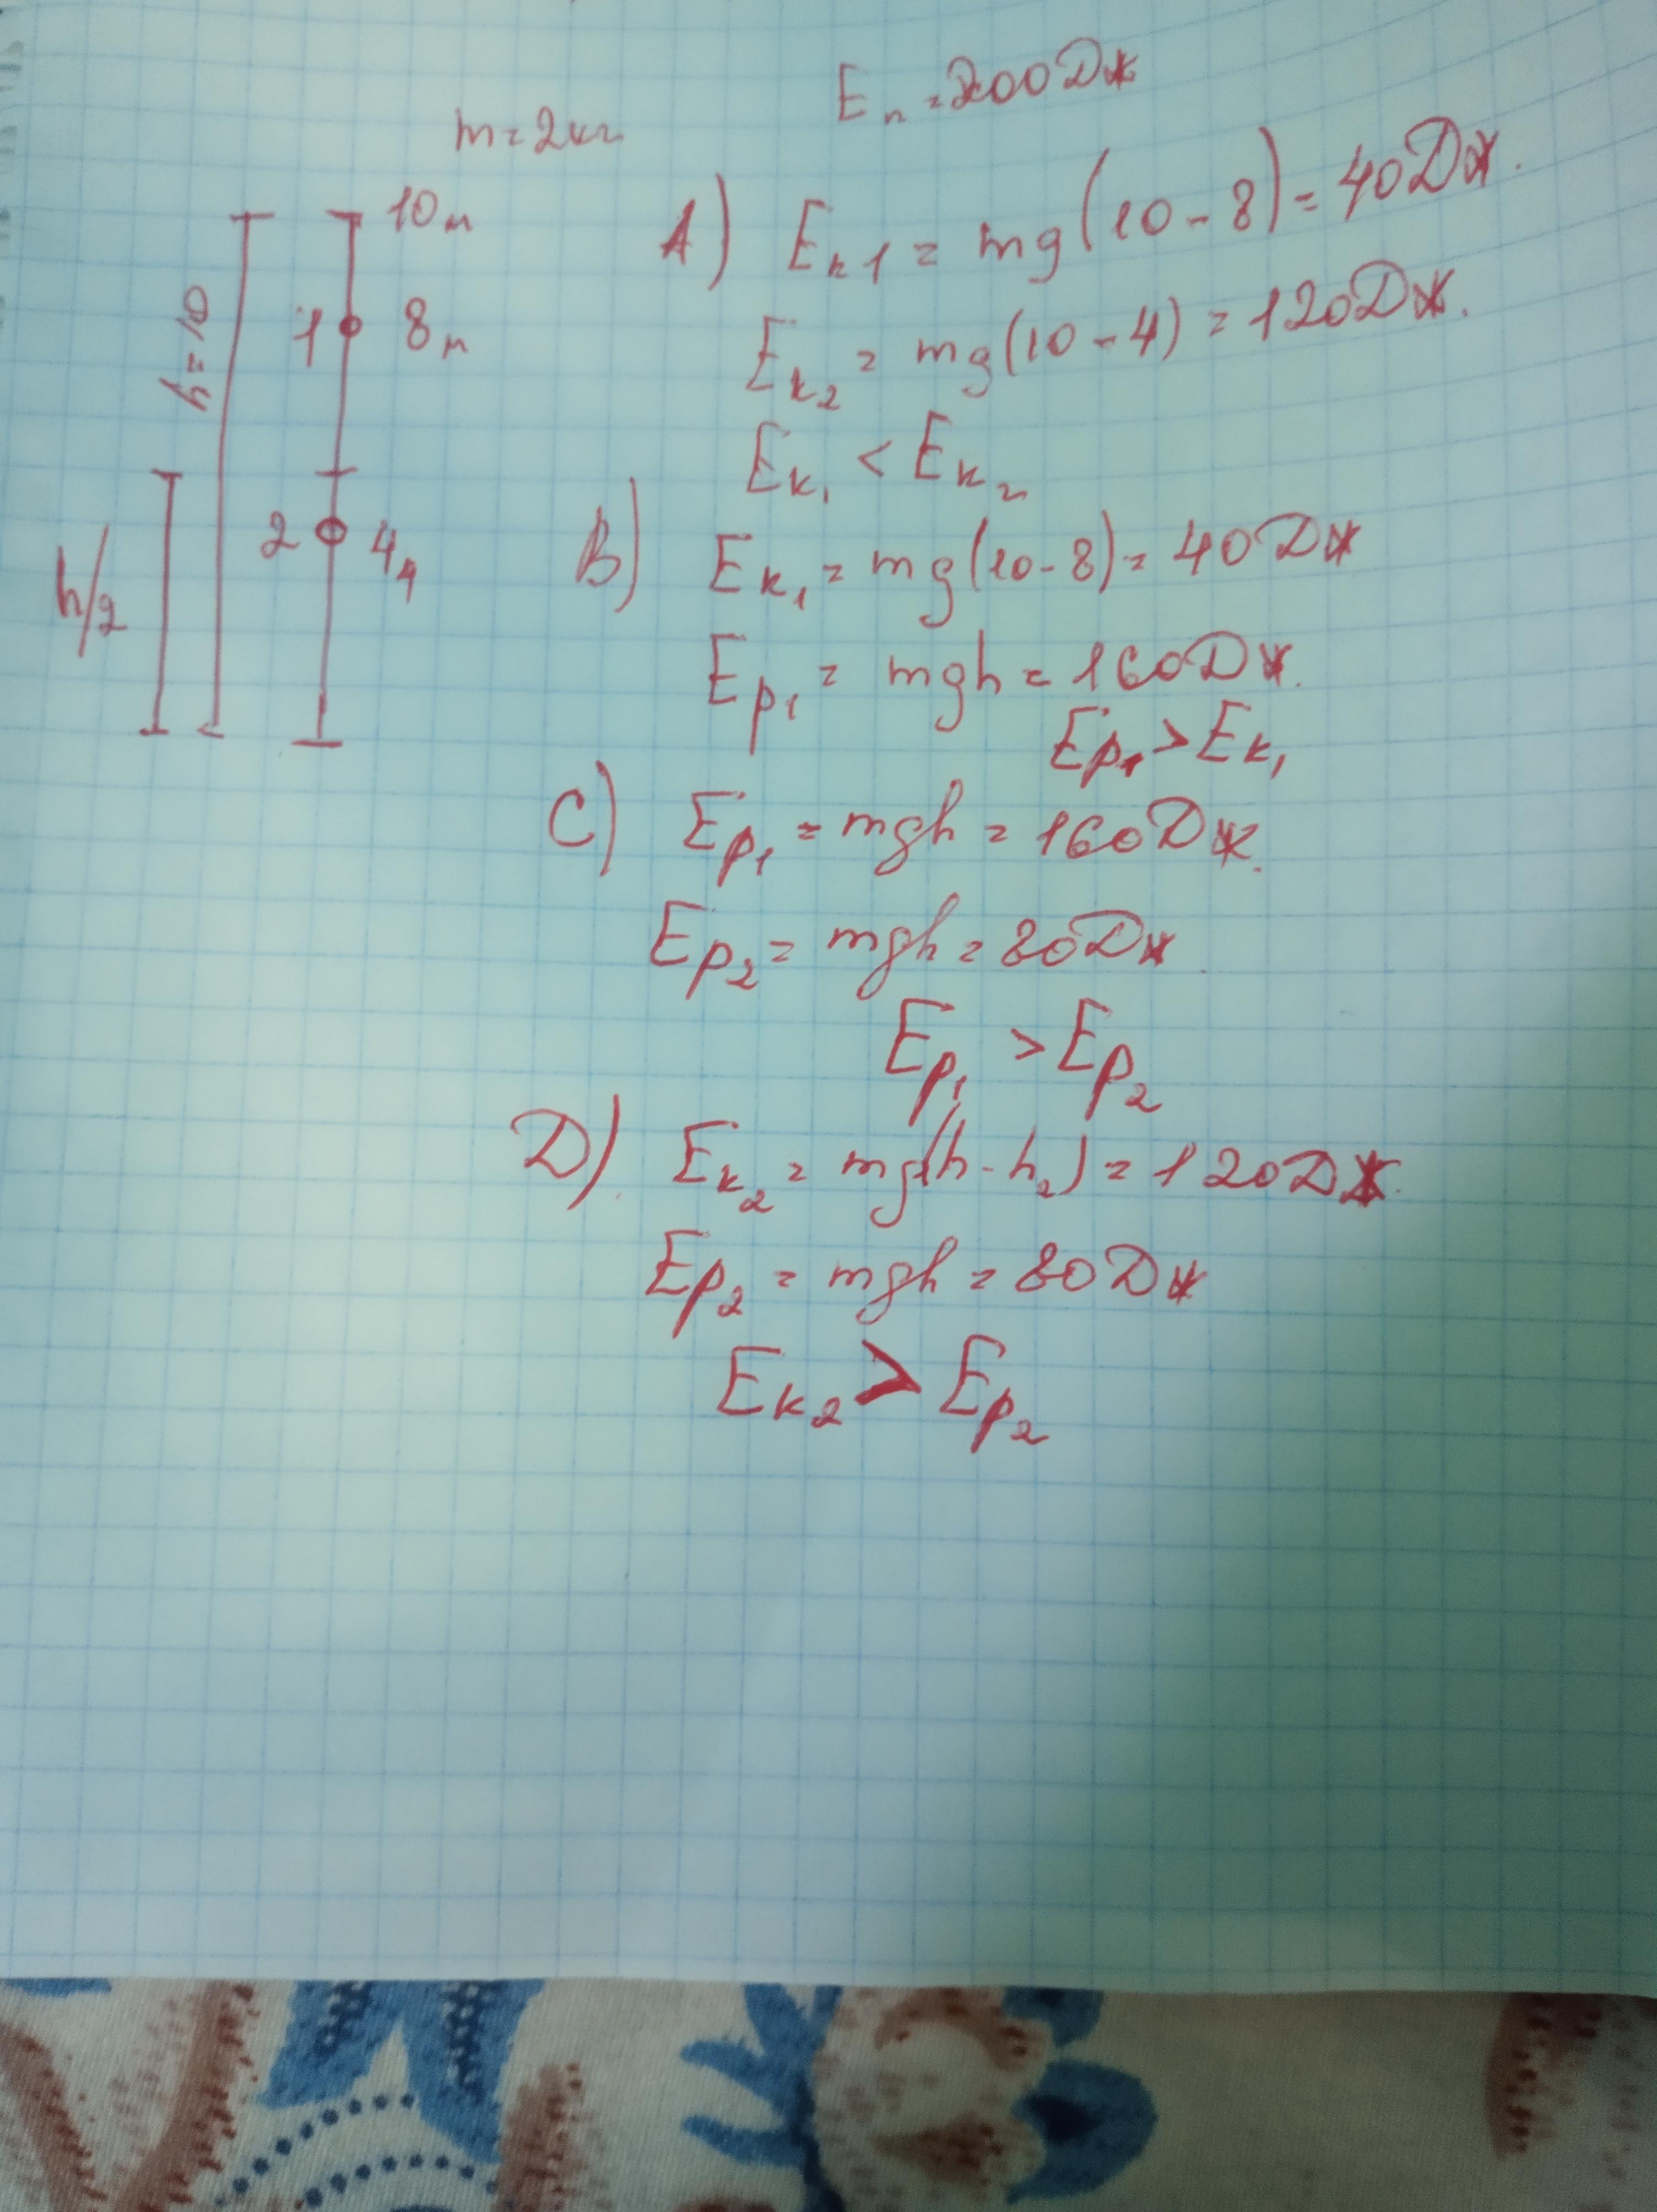 m=2кг
Eп=200Дж
10м
h=10
1 8м
2 4м
h/2
A) Eк1 = mg(10-8)=40Дж.
Eк2 = mg(10-4)=120Дж.
Eк1 < Eк2
B) Eк1 = mg(10-8)=40Дж
Ep1 = mgh=160Дж.
Ep1>Eк1
C) Ep1=mgh=160Дж.
Ep2=mgh=80Дж
Ep1 > Ep2
D) Eк2=mg(h-h2)=120Дж.
Ep2=mgh=80Дж
Eк2>Ep2